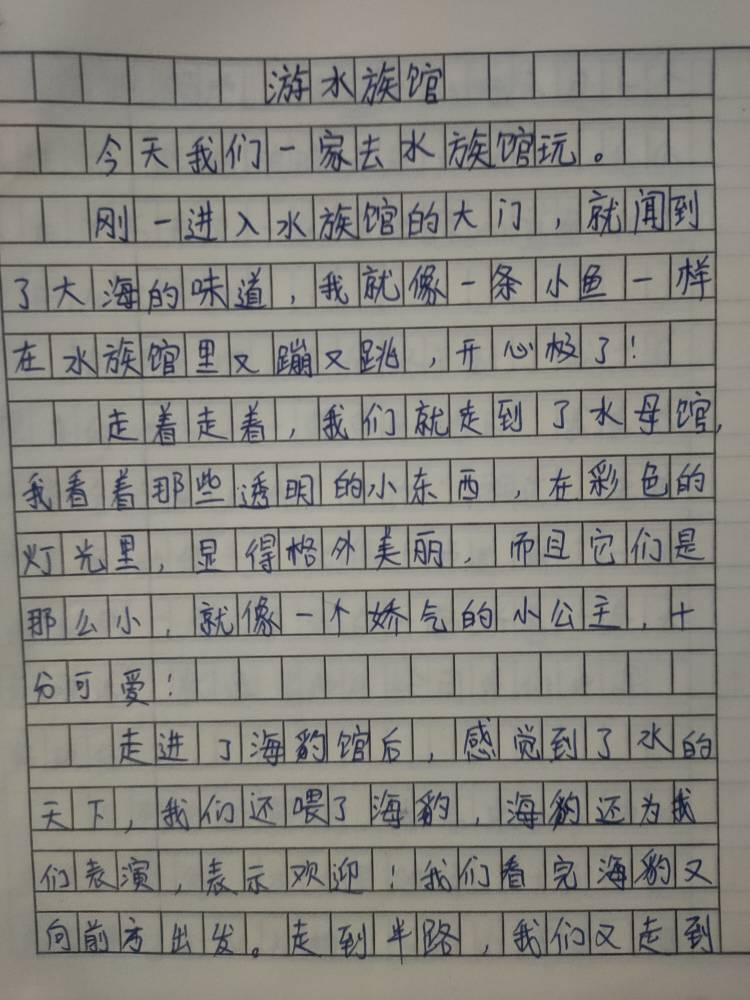 游水族馆
今天我们一家去水族馆玩。
刚一进入水族馆的大门，就闻到
了大海的味道，我就像一条小鱼一样
在水族馆里又蹦又跳，开心极了！
走着走着，我们就走到了水母馆，
我看着那些透明的小东西，在彩色的
灯光里，显得格外美丽，而且它们是
那么小，就像一个娇气的小公主，十
分可爱！
走进了海豹馆后，感觉到了水的
天下，我们还喂了海豹，海豹还为我
们表演，表示欢迎！我们看完海豹又
向前方出发。走到半路，我们又走到